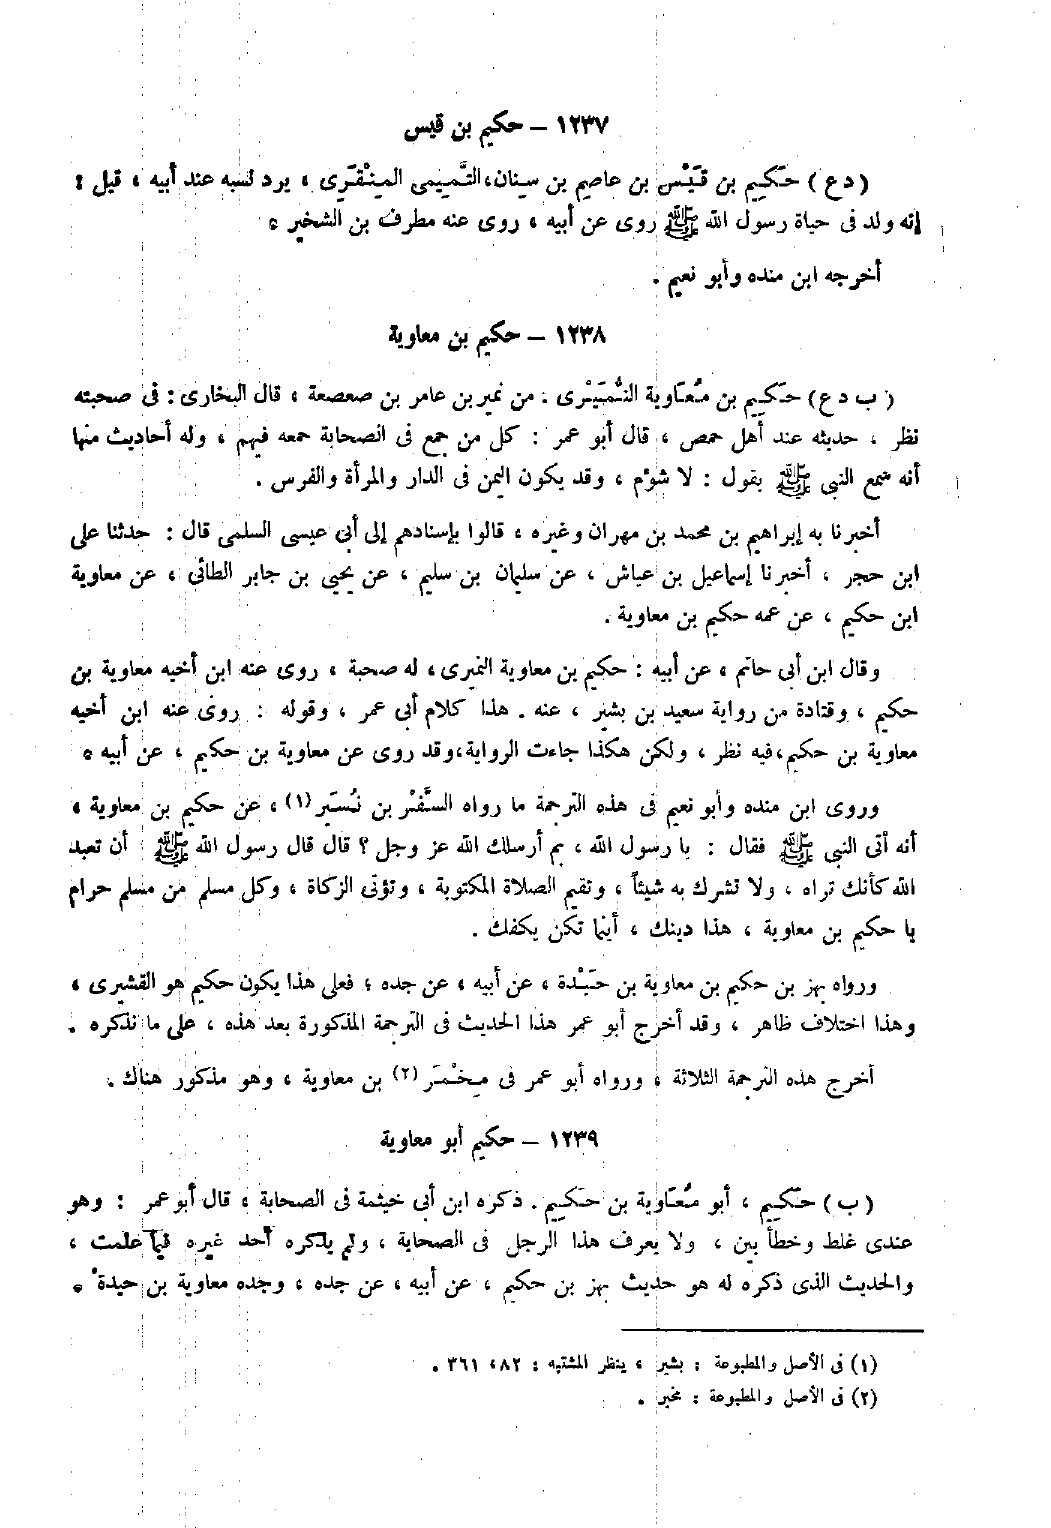 ١٢٣٧ – حكيم بن قيس
( دع ) حَكِيم بن قَيْس بن عاصم بن سينان، التَّمِيمى المِنْقَرى ، يرد نسبه عند أبيه ، قيل :
إنه ولد فى حياة رسول الله ﷺ روى عن أبيه ، روى عنه مطرف بن الشخير .
أخرجه ابن منده وأبو نعيم .
١٢٣٨ – حكيم بن معاوية
( ب د ع ) حَكِيم بن مُعَاوية النُّمَيْرى . من نمير بن عامر بن صعصعة ، قال البخارى : فى صحبته
نظر ، حديثه عند أهل حمص ، قال أبو عمر : كل من جمع فى الصحابة جمعه فيهم ، وله أحاديث منها
أنه سمع النبى ﷺ يقول : لا شؤم ، وقد يكون اليمن فى الدار والمرأة والفرس .
أخبرنا به إبراهيم بن محمد بن مهران وغيره ، قالوا بإسنادهم إلى أبى عيسى السلمى قال : حدثنا على
ابن حجر ، أخبرنا إسماعيل بن عياش ، عن سليمان بن سليم ، عن يحيى بن جابر الطائى ، عن معاوية
ابن حكيم ، عن عمه حكيم بن معاوية .
وقال ابن أبى حاتم ، عن أبيه : حكيم بن معاوية النميرى ، له صحبة ، روى عنه ابن أخيه معاوية بن
حكيم ، وقتادة من رواية سعيد بن بشير ، عنه . هذا كلام أبى عمر ، وقوله : روى عنه ابن أخيه
معاوية بن حكيم، فيه نظر ، ولكن هكذا جاءت الرواية، وقد روى عن معاوية بن حكيم ، عن أبيه .
وروى ابن منده وأبو نعيم فى هذه الترجمة ما رواه السَّفْر بن نُسَير (١) ، عن حكيم بن معاوية ،
أنه أتى النبى ﷺ فقال : يا رسول الله ، بم أرسلك الله عز وجل ؟ قال قال رسول الله ﷺ : أن تعبد
الله كأنك تراه ، ولا تشرك به شيئاً ، وتقيم الصلاة المكتوبة ، وتؤتى الزكاة ، وكل مسلم من مسلم حرام
يا حكيم بن معاوية ، هذا دينك ، أينما تكن يكفك .
ورواه بهز بن حكيم بن معاوية بن حَيْدة ، عن أبيه ، عن جده ؛ فعلى هذا يكون حكيم هو القشيرى ،
وهذا اختلاف ظاهر ، وقد أخرج أبو عمر هذا الحديث فى الترجمة المذكورة بعد هذه ، على ما نذكره .
أخرج هذه الترجمة الثلاثة ، ورواه أبو عمر فى مِخْمَر (٢) بن معاوية ، وهو مذكور هناك .
١٢٣٩ – حكيم أبو معاوية
( ب ) حَكِيم ، أبو مُعَاوية بن حَكِيم . ذكره ابن أبى خيثمة فى الصحابة ، قال أبو عمر : وهو
عندى غلط وخطأ بين ، ولا يعرف هذا الرجل فى الصحابة ، ولم يذكره أحد غيره فيما علمت ،
والحديث الذى ذكره له هو حديث بهز بن حكيم ، عن أبيه ، عن جده ، وجده معاوية بن حيدة .
(١) فى الأصل والمطبوعة : بشير ، ينظر المشتبه : ٨٢، ٣٦١ .
(٢) فى الأصل والمطبوعة : مخبر .